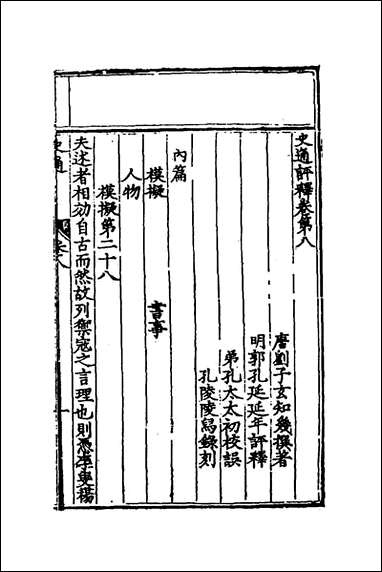 史通評釋卷第八
唐劉子玄知幾撰著
明郭孔延延年評釋
弟孔太太初校誤
孔陵陵舄錄刻
內篇
模擬 書事
人物
模擬第二十八
夫述者相効自古而然故列禦寇之言理也則憑李叟揚
史通 卷八 一